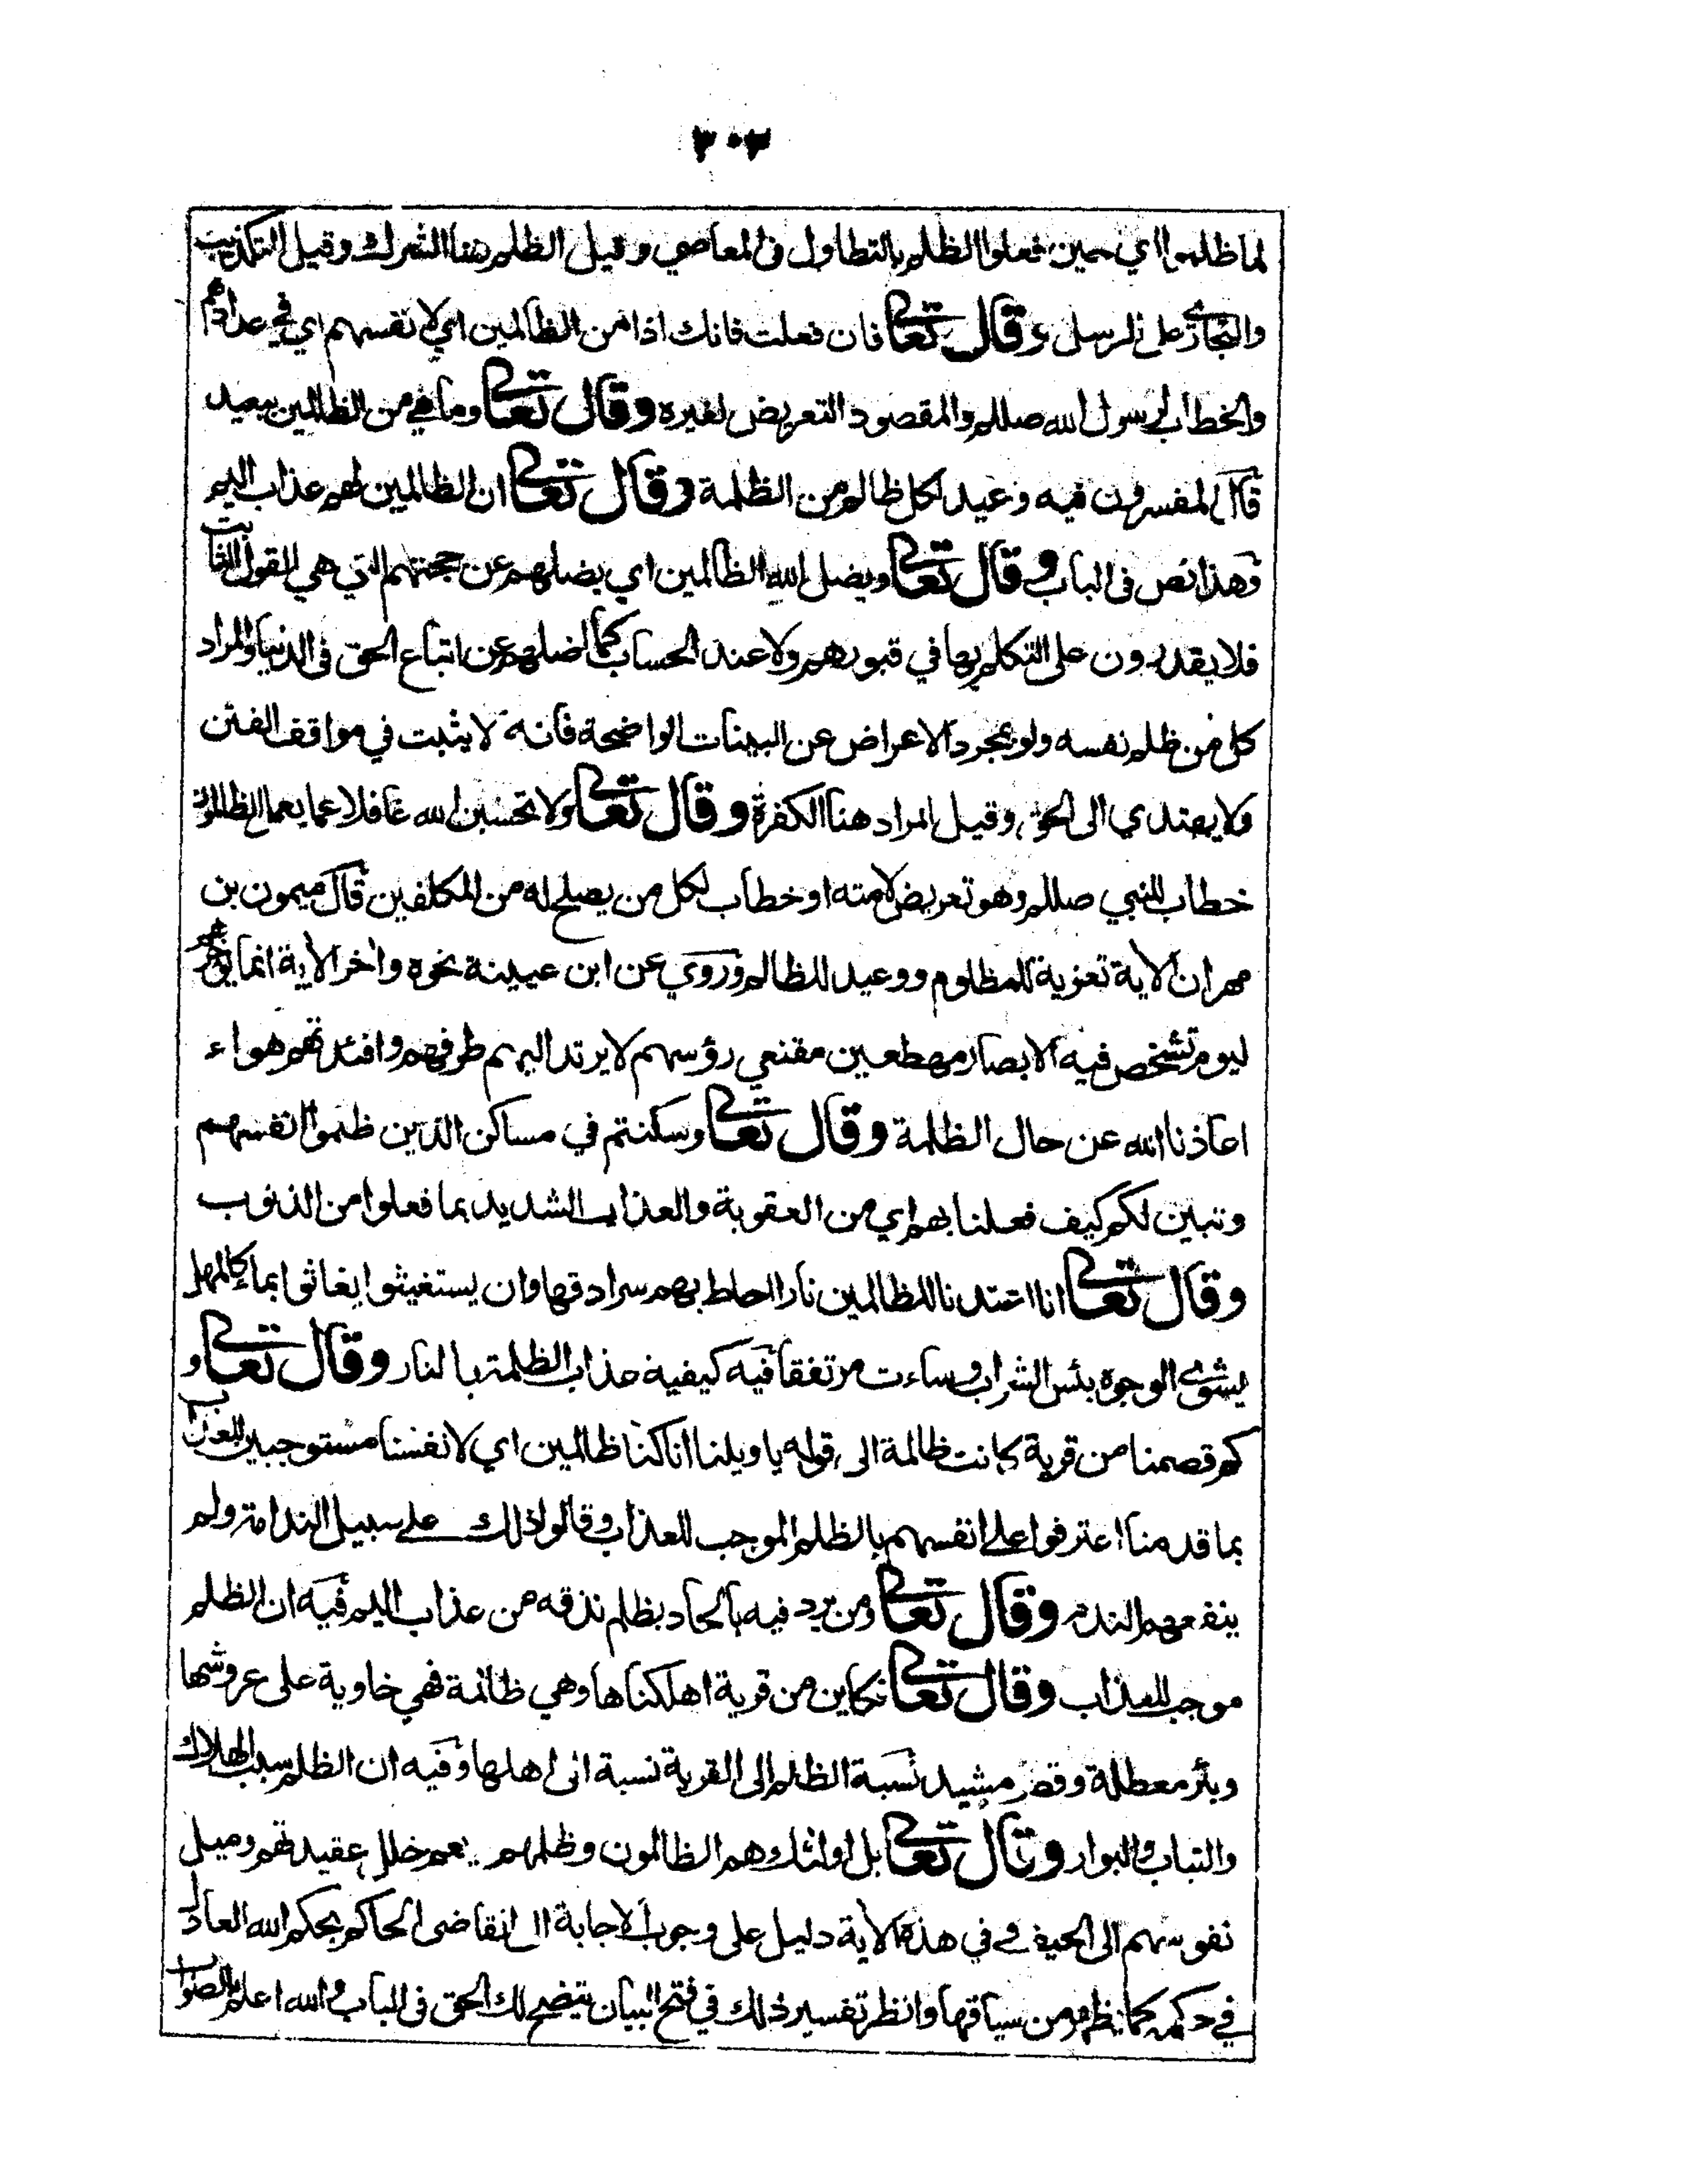 ٣٠٣
لما ظلموا اي حين فعلوا الظلم بالتطاول فى المعاصي وقيل الظلم هنا الشرك وقيل التكذيب
والتجاري على الرسل وقال تعالى فان فعلت فانك اذا من الظالمين اي لانفسهم اي في عدادهم
والخطاب لرسول الله صللم والمقصود التعريض لغيره وقال تعالى وما هي من الظالمين ببعيد
قال المفسرون فيه وعيد لكل ظالم من الظلمة وقال تعالى ان الظالمين لهم عذاب اليم
وهذا نص فى الباب وقال تعالى ويضل الله الظالمين اي يضلهم عن حجتهم التي هي القول الثابت
فلا يقدرون على التكلم بها في قبورهم ولا عند الحساب كما اضلهم عن اتباع الحق فى الدنيا والمراد
كل من ظلم نفسه ولو بمجرد الاعراض عن البينات الواضحة فانه لا يثبت في مواقف الفتن
ولا يهتدي الى الحق وقيل المراد هنا الكفرة وقال تعالى ولا تحسبن الله غافلا عما يعمل الظالمون
خطاب للنبي صللم وهو تعريض لامته او خطاب لكل من يصلح له من المكلفين قال ميمون بن
مهران الاية تعزية للمظلوم ووعيد للظالم وروي عن ابن عيينة نحوه واخر الاية انما يؤخرهم
ليوم تشخص فيه الابصار مهطعين مقنعي رؤسهم لا يرتد اليهم طرفهم وافئدتهم هواء
اعاذنا الله عن حال الظلمة وقال تعالى وسكنتم في مساكن الذين ظلموا انفسهم
وتبين لكم كيف فعلنا بهم اي من العقوبة والعذاب الشديد بما فعلوا من الذنوب
وقال تعالى انا اعتدنا للظالمين نارا احاط بهم سرادقها وان يستغيثوا يغاثوا بماء كالمهل
يشوي الوجوه بئس الشراب وساءت مرتفقا فيه كيفية عذاب الظلمة بالنار وقال تعالى و
كم قصمنا من قرية كانت ظالمة الى قوله يا ويلنا انا كنا ظالمين اي لانفسنا مستوجبين للعذاب
بما قدمنا اعترفوا على انفسهم بالظلم الموجب للعذاب وقالوا ذلك على سبيل الندامة ولم
ينفعهم الندم وقال تعالى ومن يرد فيه بالحاد بظلم نذقه من عذاب اليم فيه ان الظلم
موجب للعذاب وقال تعالى فكاين من قرية اهلكناها وهي ظالمة فهي خاوية على عروشها
وبئر معطلة وقصر مشيد نسبة الظلم الى القرية نسبة الى اهلها وفيه ان الظلم سبب الهلاك
والتباب والبوار وقال تعالى بل اولئك هم الظالمون وظلمهم يعم خلل عقيدتهم وميل
نفوسهم الى الحيف وفي هذه الاية دليل على وجوب الاجابة الى القاضى الحاكم بحكم الله العادل
في حكمه كما يظهر من سياقها وانظر تفسير ذلك في فتح البيان يتضح لك الحق فى الباب والله اعلم بالصواب